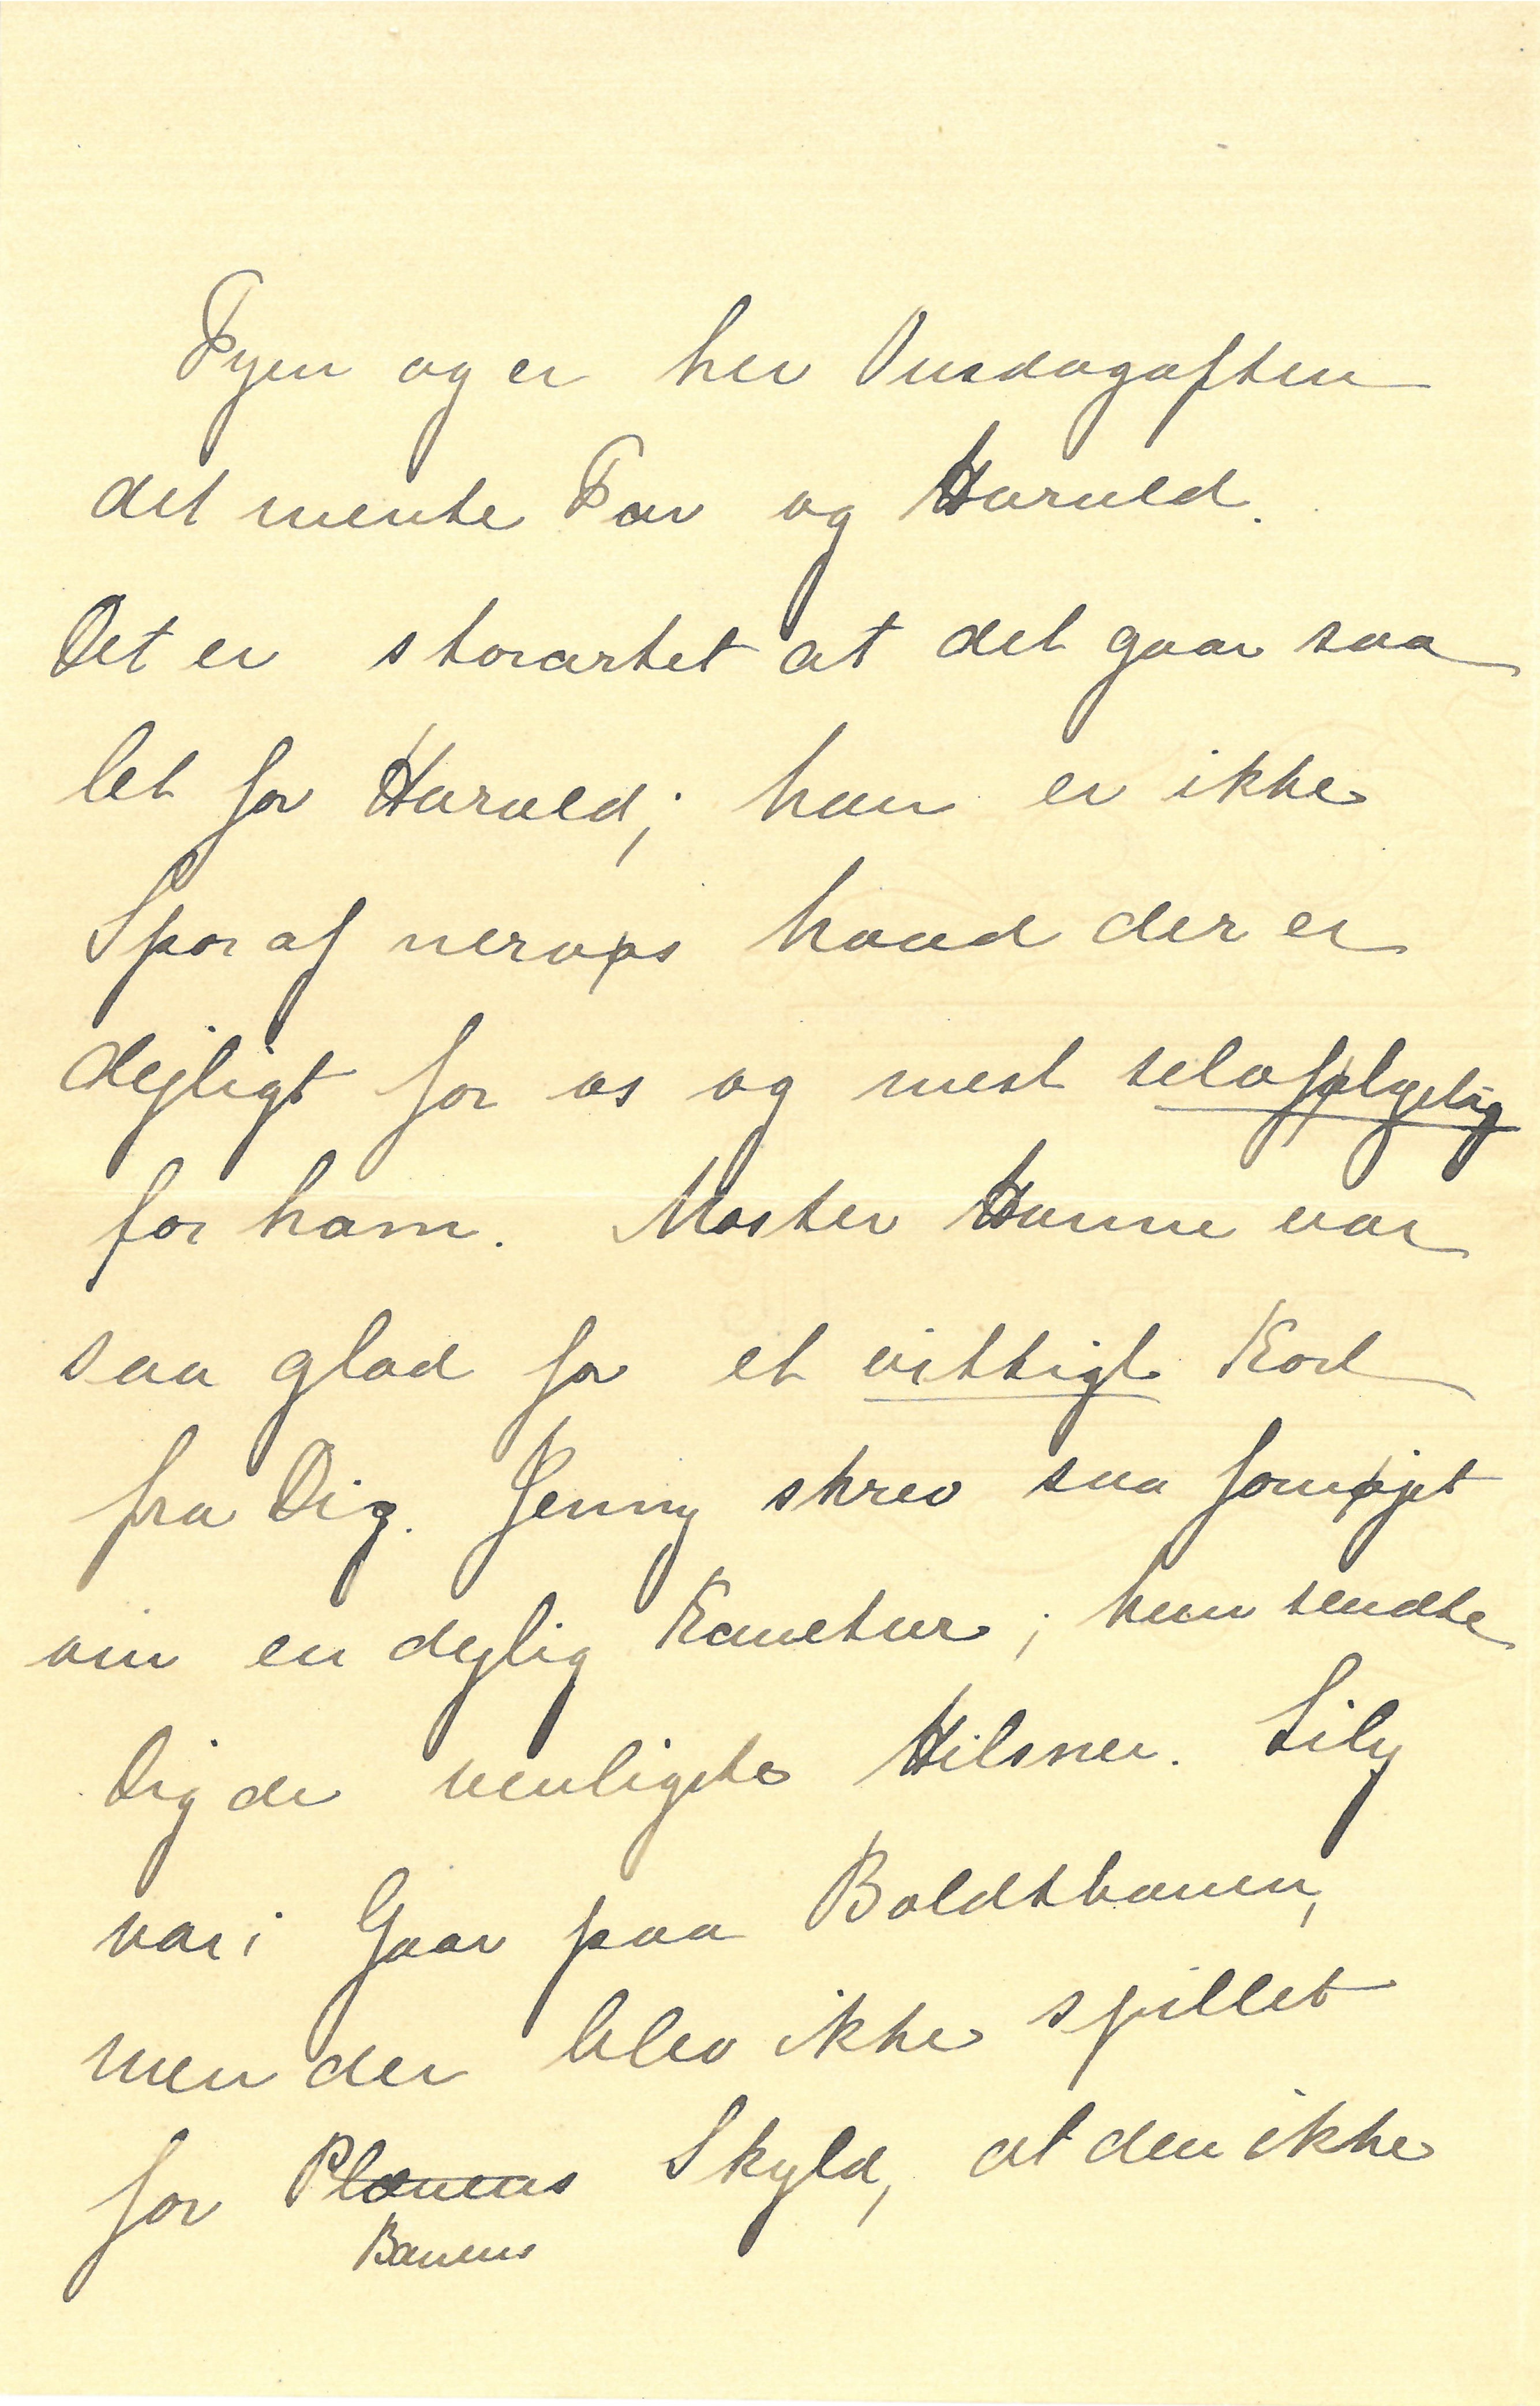 Fyen og er her Onsdagaften
det mente Far og Harald.
Det er storartet at det gaar saa
let for Harald; han er ikke
Spor af nervøs hvad der er
dejligt for os og mest selvfølgelig
for ham. Moster Hanne var
saa glad for et vittigt Kort
fra Dig. Jenny skrev saa fornøjet
om en dejlig Kanetur; hun sendte
Dig de venligste Hilsner. Lily
var i Gaar paa Boldtbanen,
men der blev ikke spillet
for Planens Skyld, at den ikke
Banens